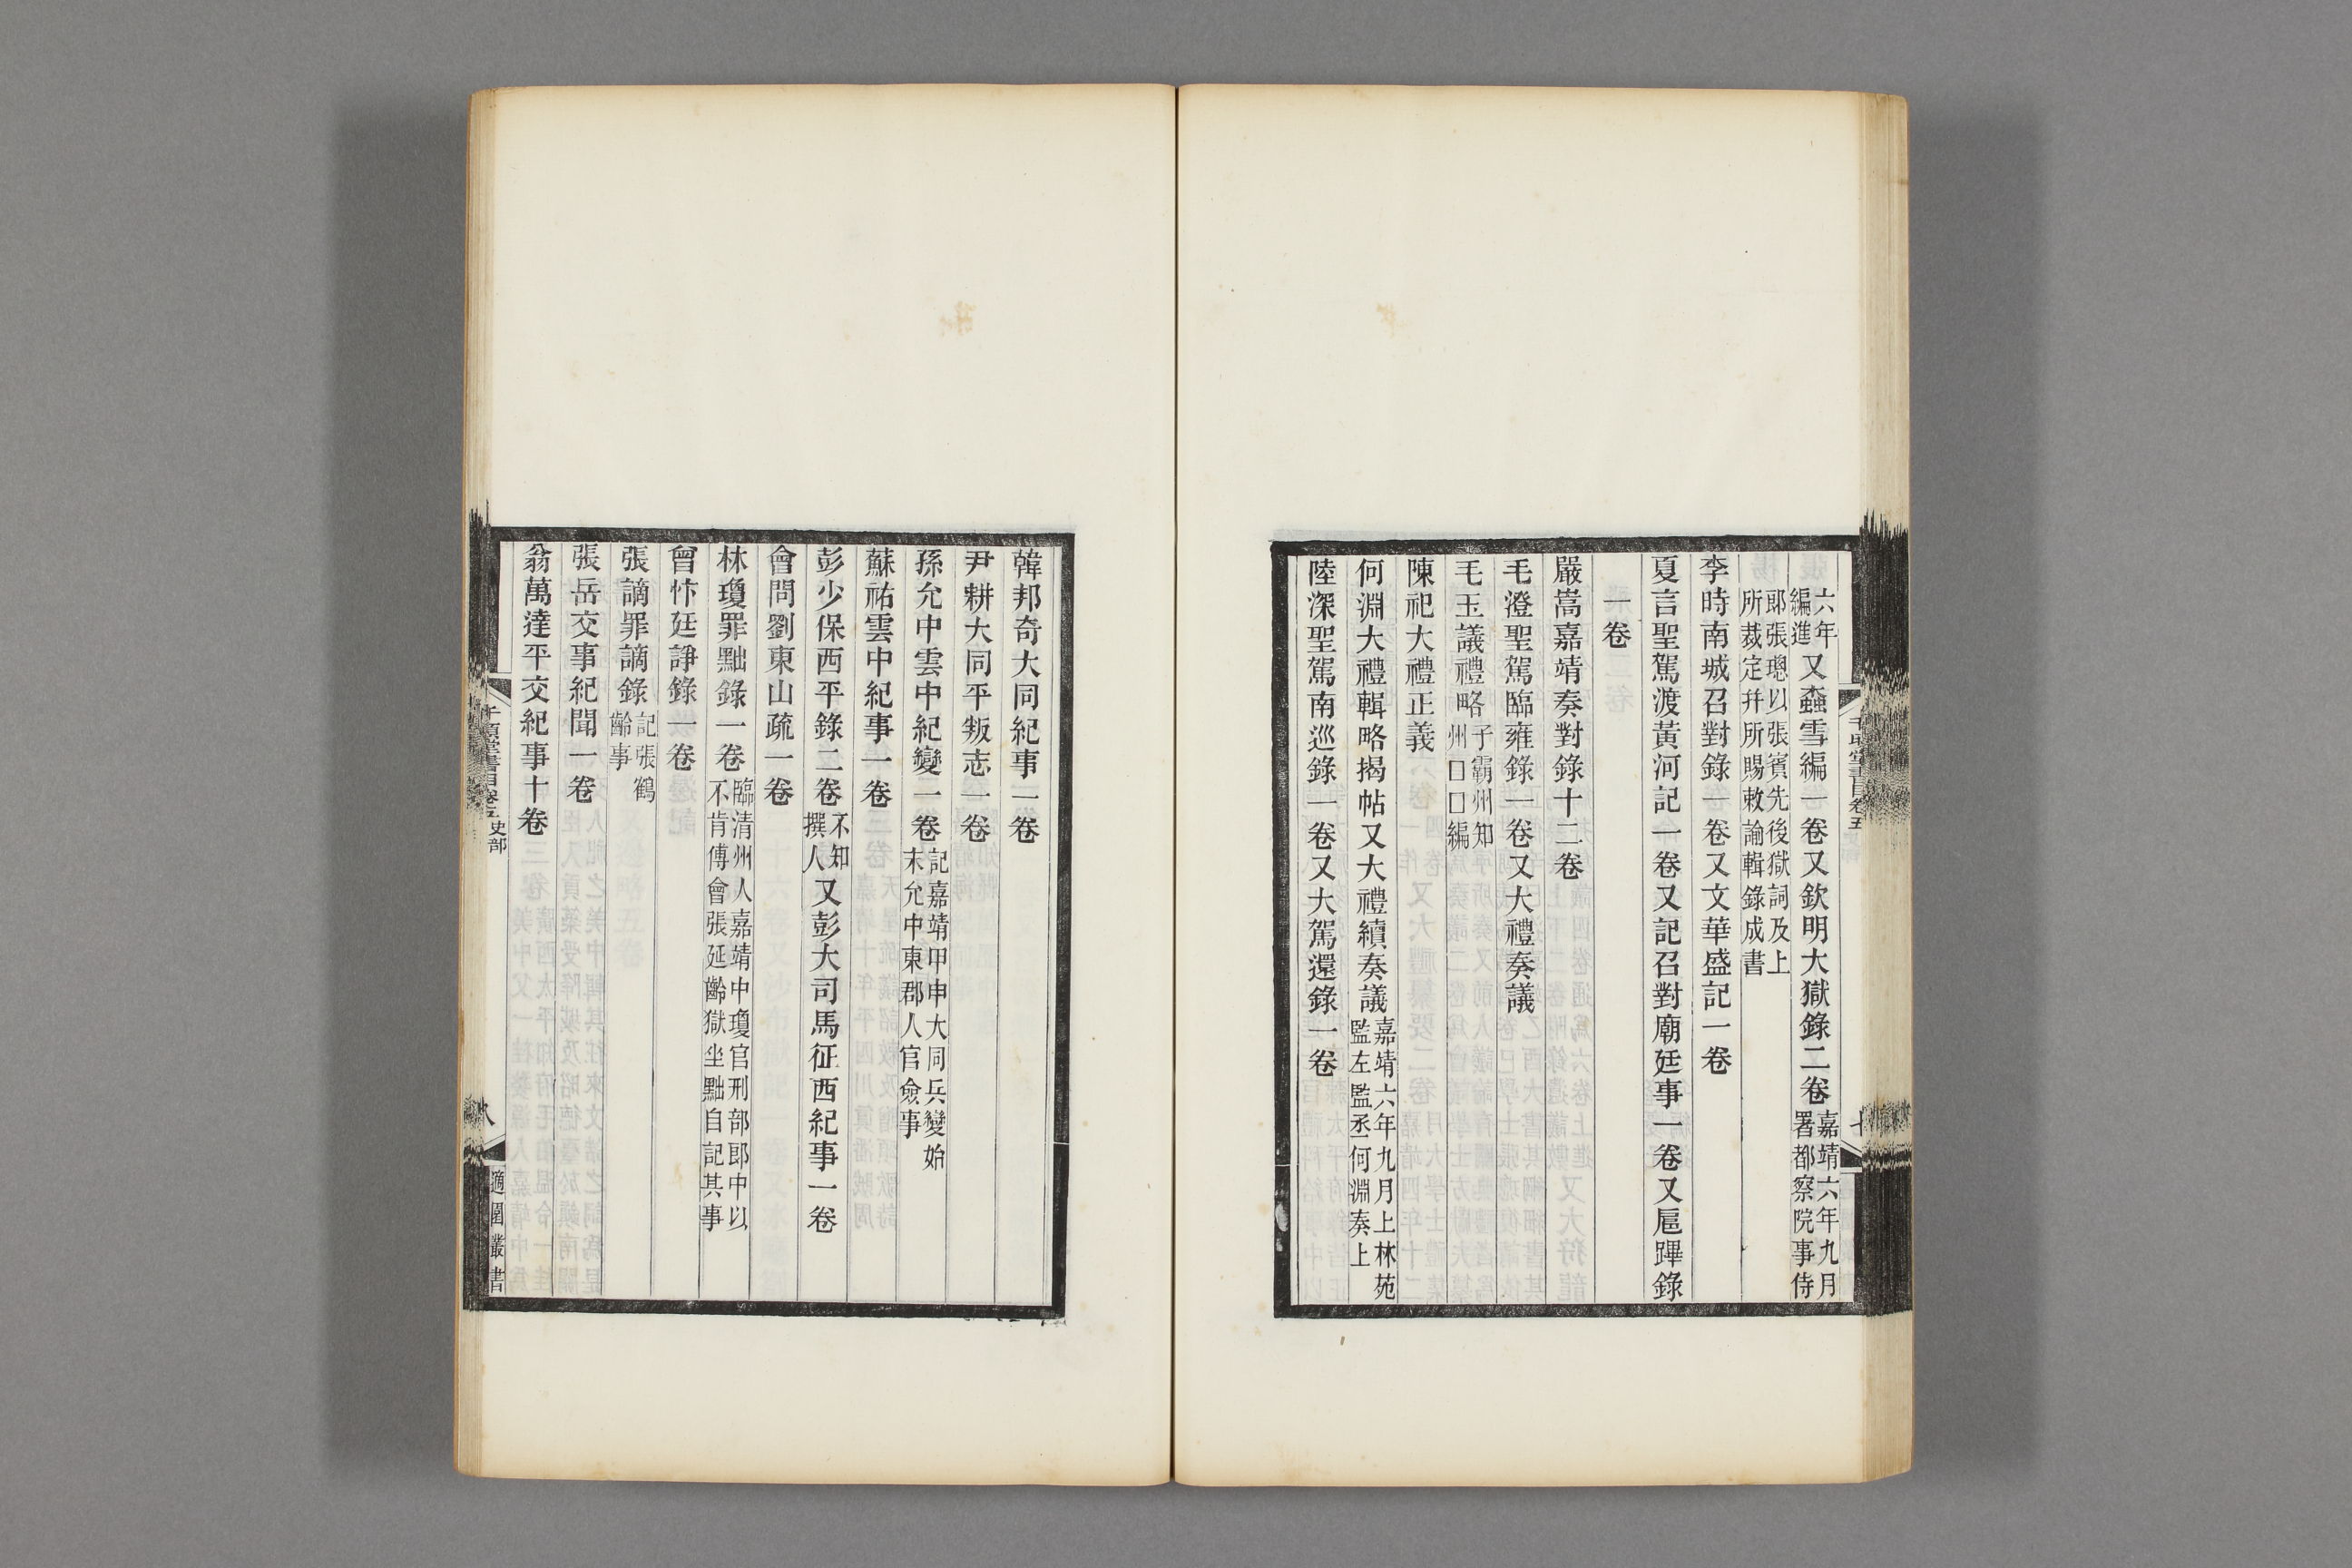 六年編進又螙雪編一卷又欽明大獄錄二卷嘉靖六年九月署都察院事侍
郎張璁以張賓先後獄詞及上所裁定幷所賜敕諭輯錄成書
李時南城召對錄一卷又文華盛記一卷
夏言聖駕渡黃河記一卷又記召對廟廷事一卷又扈蹕錄
一卷
嚴嵩嘉靖奏對錄十二卷
毛澄聖駕臨雍錄一卷又大禮奏議
毛玉議禮略子霸州知州□□編
陳祀大禮正義
何淵大禮輯略揭帖又大禮續奏議嘉靖六年九月上林苑監左監丞何淵奏上
陸深聖駕南巡錄一卷又大駕還錄一卷
韓邦奇大同紀事一卷
尹耕大同平叛志一卷
孫允中雲中紀變一卷記嘉靖甲申大同兵變始末允中東郡人官僉事
蘇祐雲中紀事一卷
彭少保西平錄二卷不知撰人又彭大司馬征西紀事一卷
會問劉東山疏一卷
林瓊罪黜錄一卷臨清州人嘉靖中瓊官刑部郎中以不肯傅會張延齡獄坐黜自記其事
曾忭廷諍錄一卷
張謫罪謫錄記張鶴齡事
張岳交事紀聞一卷
翁萬達平交紀事十卷
千頃堂書目卷五 史部
八
適園叢書